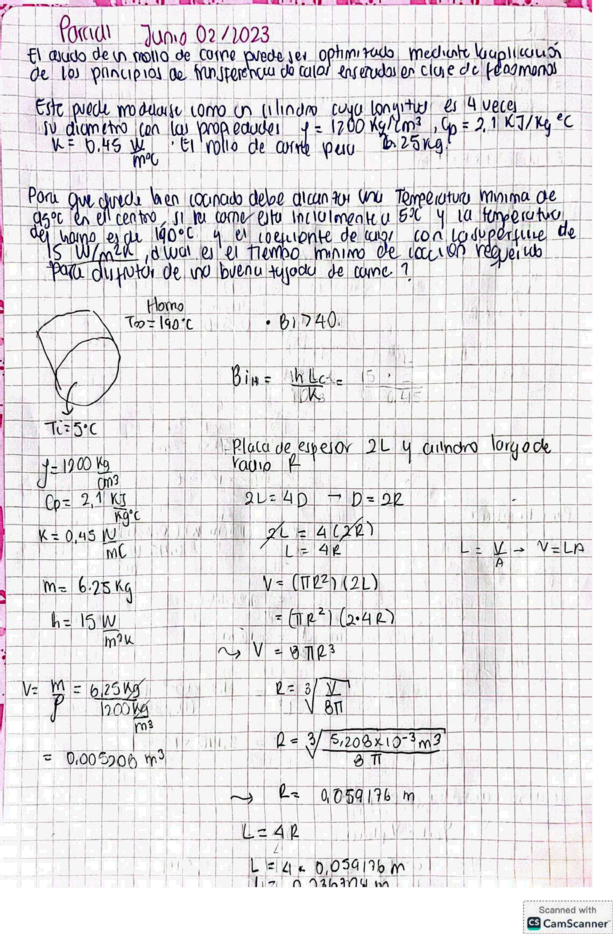 Parcial Junio 02/2023
El asado de un rollo de carne puede ser optimizado mediante la aplicación
de los principios de transferencia de calor enseñados en clase de fenomenos
Este puede modelarse como un cilindro cuya longitud es 4 veces
su diametro con las propiedades ρ = 1200 Kg/cm³, Cp = 2,1 KJ/Kg °C
K = 0,45 W/m°C . El rollo de carne pesa 6.25 Kg.
Para que quede bien cocinado debe alcanzar una Temperatura minima de
95°C en el centro, si la carne esta inicialmente a 5°C y la temperatura
del horno es de 190°C y el coeficiente de calor con la superficie de
15 W/m²K, ¿cual es el tiempo minimo de cocción requerido
Para disfrutar de una buena tajada de carne ?
Horno
T∞ = 190°C
• Bi > 40.
Bi H = h Lc / K = 15 · / 0,45
Ti = 5°C
Placa de espesor 2L y cilindro largo de
radio R
ρ = 1200 Kg/cm³
2L = 4D → D = 2R
Cp = 2,1 KJ/Kg°C
2L = 4(2R)
K = 0,45 W/mC
L = 4R
L = V/A → V = LA
m = 6.25 Kg
V = (πR²)(2L)
h = 15 W/m²K
= (πR²)(2•4R)
~> V = 8πR³
V = m/ρ = 6,25 Kg / 1200 Kg/m³
R = ³√(V/8π)
R = ³√(5,208x10⁻³ m³ / 8π)
= 0,005208 m³
~> R = 0,059176 m
L = 4R
L = 4 • 0,059176 m
L = 0,236704 m
Scanned with
CS CamScanner